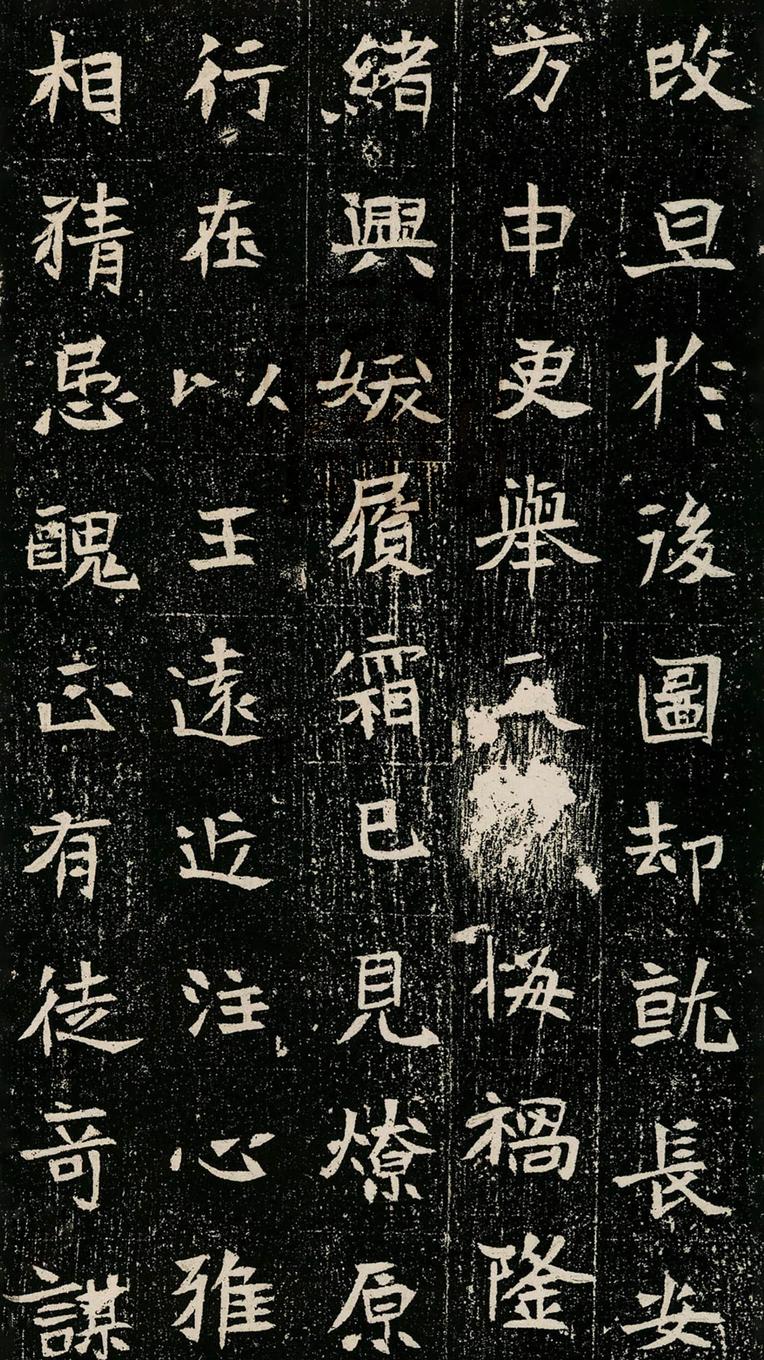 改旦於後圖却就長安
方申更舉天悔禍隆
緒興妖履霜已見燎原
行在以王遠近注心雅
相猜忌醜正有徒奇謀